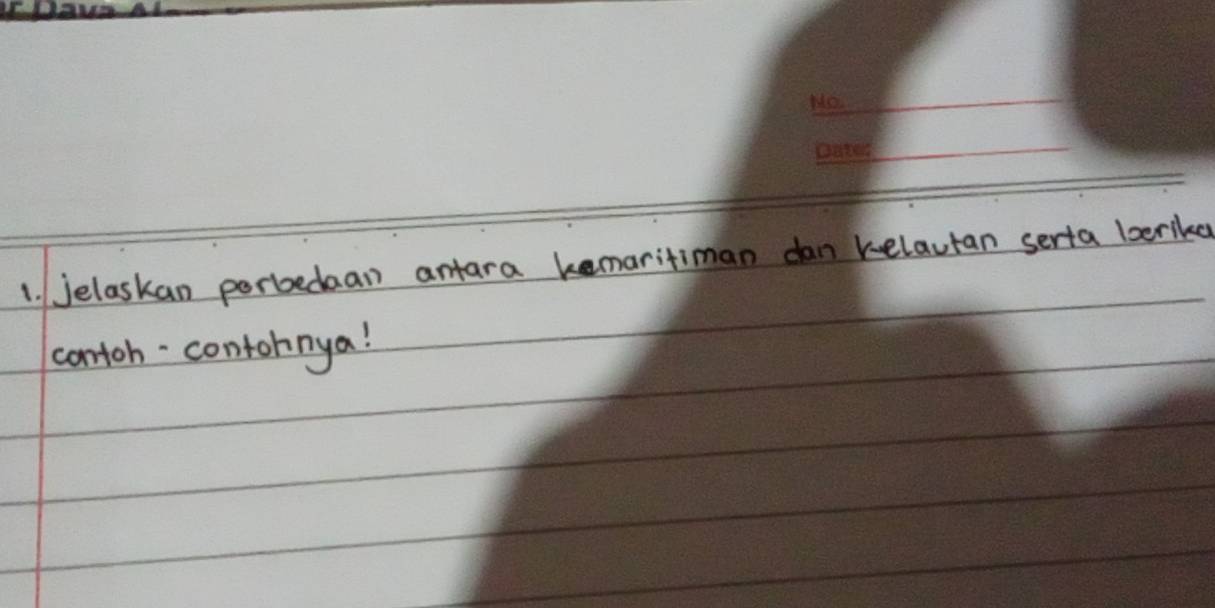 No.
Date:
1. Jelaskan perbedaan antara kemaritiman dan kelautan serta berika
contoh - contohnya!